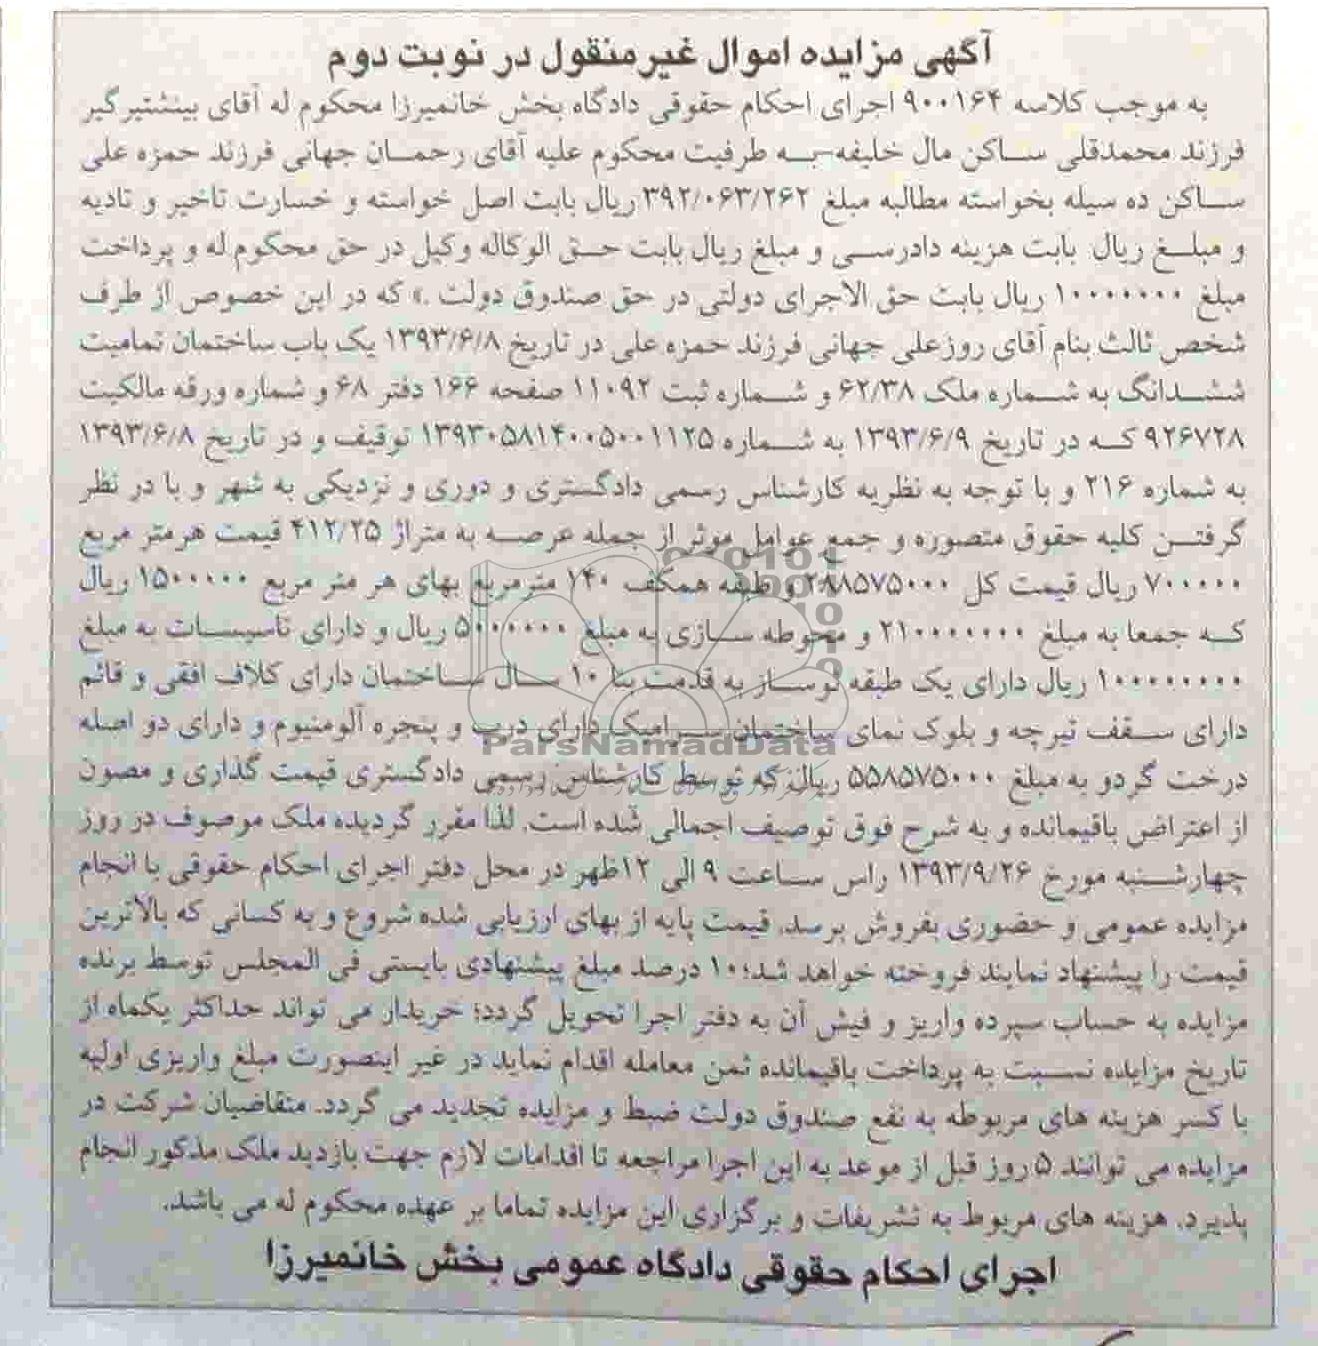 آگهی مزایده اموال غیرمنقول در نوبت دوم
به موجب کلاسه ۹۰۰۱۶۴ اجرای احکام حقوقی دادگاه بخش خانمیرزا محکوم له آقای بینشتیرگیر
فرزند محمدقلی ساکن مال خلیفه-به طرفیت محکوم علیه آقای رحمان جهانی فرزند حمزه علی
ساکن ده سیله بخواسته مطالبه مبلغ ۳۹۲/۰۶۳/۲۶۲ ریال بابت اصل خواسته و خسارت تاخیر و تادیه
و مبلغ ریال بابت هزینه دادرسی و مبلغ ریال بابت حق الوکاله وکیل در حق محکوم له و پرداخت
مبلغ ۱۰۰۰۰۰۰۰ ریال بابت حق الاجرای دولتی در حق صندوق دولت .» که در این خصوص از طرف
شخص ثالث بنام آقای روزعلی جهانی فرزند حمزه علی در تاریخ ۱۳۹۳/۶/۸ یک باب ساختمان تمامیت
ششدانگ به شماره ملک ۶۲/۳۸ و شماره ثبت ۱۱۰۹۲ صفحه ۱۶۶ دفتر ۶۸ و شماره ورقه مالکیت
۹۲۶۷۲۸ که در تاریخ ۱۳۹۳/۶/۹ به شماره ۱۳۹۳۰۵۸۱۴۰۰۵۰۰۱۱۲۵ توقیف و در تاریخ ۱۳۹۳/۶/۸
به شماره ۲۱۶ و با توجه به نظریه کارشناس رسمی دادگستری و دوری و نزدیکی به شهر و با در نظر
گرفتن کلیه حقوق متصوره و جمع عوامل موثر از جمله عرصه به متراژ ۴۱۲/۲۵ قیمت هرمتر مربع
۷۰۰۰۰۰ ریال قیمت کل ۲۸۸۵۷۵۰۰۰ و طبقه همکف ۱۴۰ مترمربع بهای هر متر مربع ۱۵۰۰۰۰۰ ریال
که جمعا به مبلغ ۲۱۰۰۰۰۰۰۰ و محوطه سازی به مبلغ ۵۰۰۰۰۰۰۰ ریال و دارای تاسیسات به مبلغ
۱۰۰۰۰۰۰۰۰ ریال دارای یک طبقه نوساز به قدمت بنا ۱۰ سال ساختمان دارای کلاف افقی و قائم
دارای سقف تیرچه و بلوک نمای ساختمان سرامیک دارای درب و پنجره آلومنیوم و دارای دو اصله
درخت گردو به مبلغ ۵۵۸۵۷۵۰۰۰ ریال که توسط کارشناس رسمی دادگستری قیمت گذاری و مصون
از اعتراض باقیمانده و به شرح فوق توصیف اجمالی شده است. لذا مقرر گردیده ملک موصوف در روز
چهارشنبه مورخ ۱۳۹۳/۹/۲۶ راس ساعت ۹ الی ۱۲ظهر در محل دفتر اجرای احکام حقوقی با انجام
مزایده عمومی و حضوری بفروش برسد. قیمت پایه از بهای ارزیابی شده شروع و به کسانی که بالاترین
قیمت را پیشنهاد نمایند فروخته خواهد شد؛۱۰ درصد مبلغ پیشنهادی بایستی فی المجلس توسط برنده
مزایده به حساب سپرده واریز و فیش آن به دفتر اجرا تحویل گردد؛ خریدار می تواند حداکثر یکماه از
تاریخ مزایده نسبت به پرداخت باقیمانده ثمن معامله اقدام نماید در غیر اینصورت مبلغ واریزی اولیه
با کسر هزینه های مربوطه به نفع صندوق دولت ضبط و مزایده تجدید می گردد. متقاضیان شرکت در
مزایده می توانند ۵ روز قبل از موعد به این اجرا مراجعه تا اقدامات لازم جهت بازدید ملک مذکور انجام
پذیرد. هزینه های مربوط به تشریفات و برگزاری این مزایده تماما بر عهده محکوم له می باشد.
اجرای احکام حقوقی دادگاه عمومی بخش خانمیرزا
ParsNamadData